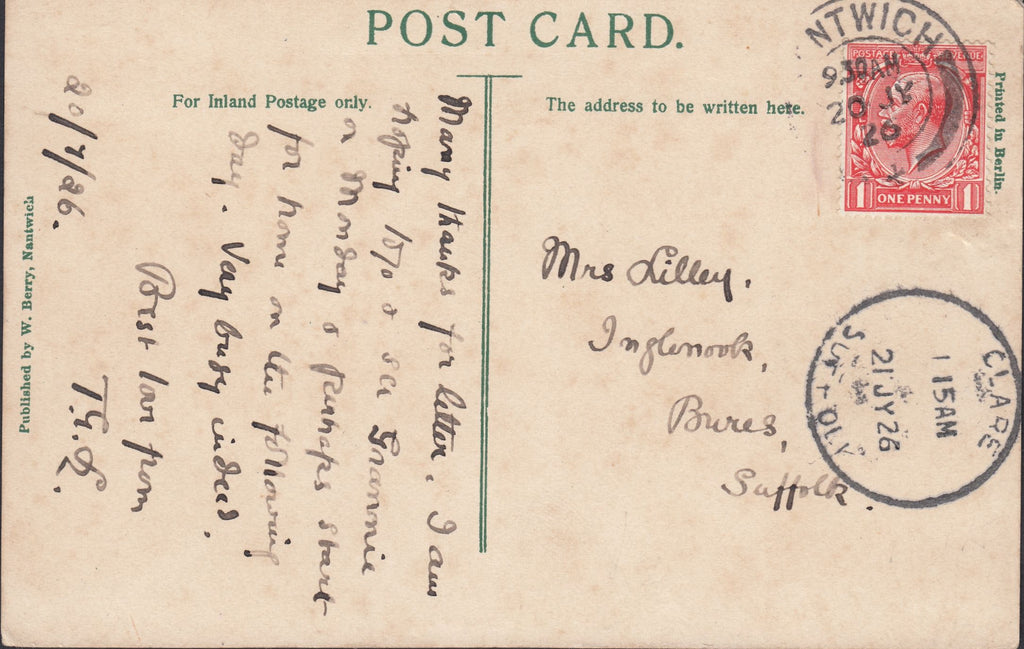 POST CARD.
For Inland Postage only.
The address to be written here.
Printed in Berlin.
Published by W. Berry, Nantwich
NTWICH
9.30AM
20 JY
26
POSTAGE
REVENUE
1 ONE PENNY 1
CLARE
1 15AM
21 JY 26
SUFFOLK
Mrs Lilley,
Inglenook,
Bures,
Suffolk.
20/7/26.
Many thanks for letter. I am
hoping to go & see Grannie
on Monday & perhaps start
for home on the following
day. Very busy indeed.
Best love from
T.G.L.